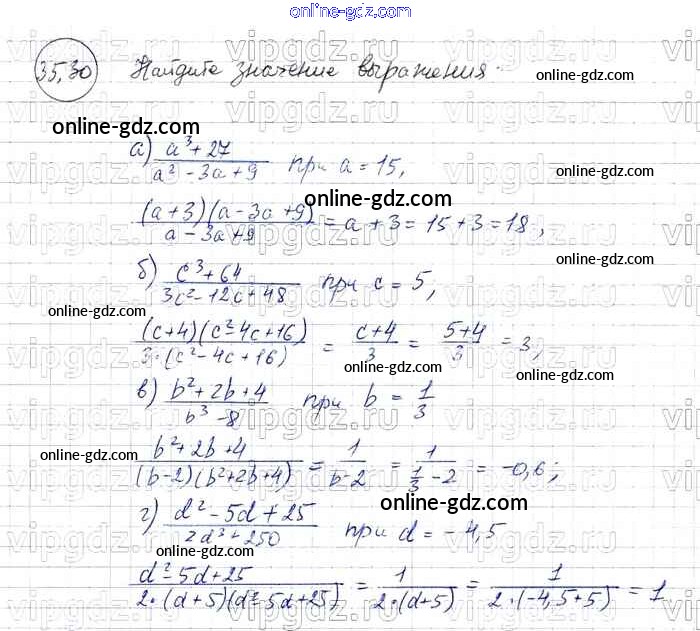 online-gdz.com
35,30 Найдите значение выражения.
online-gdz.com
online-gdz.com
а) a³ + 27 / a² - 3a + 9 при a = 15,
online-gdz.com
online-gdz.com
(a+3)(a-3a+9) / a - 3a + 9 = a + 3 = 15 + 3 = 18,
б) c³ + 64 / 3c² - 12c + 48 при c = 5,
online-gdz.com
online-gdz.com
(c+4)(c²-4c+16) / 3·(c² - 4c + 16) = c+4 / 3 = 5+4 / 3 = 3,
online-gdz.com
в) b² + 2b + 4 / b³ - 8 при b = 1/3
online-gdz.com
b² + 2b + 4 / (b-2)(b²+2b+4) = 1 / b-2 = 1 / 1/3 - 2 = -0,6;
online-gdz.com
г) d² - 5d + 25 / 2d³ + 250 при d = -4,5
online-gdz.com
online-gdz.com
d² - 5d + 25 / 2·(d+5)(d²-5d+25) = 1 / 2·(d+5) = 1 / 2·(-4,5+5) = 1
vipgdz